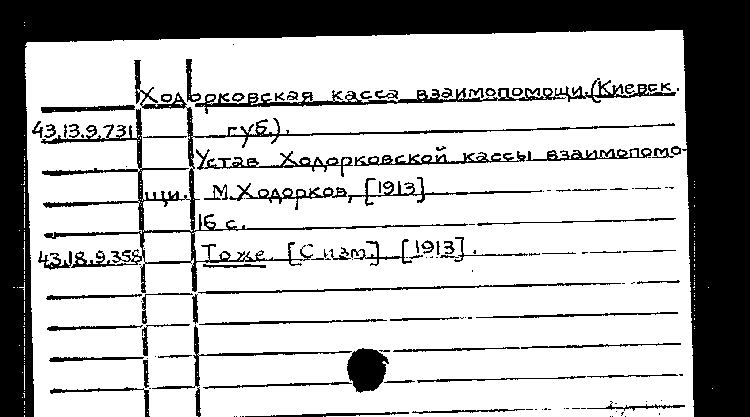 Ходорковская касса взаимопомощи.(Киевск.
43.13.9.731 губ.).
Устав Ходорковской кассы взаимопомо-
щи. М.Ходорков, [1913]
16 с.
43.18.9.358 То же. [С изм.]. [1913].